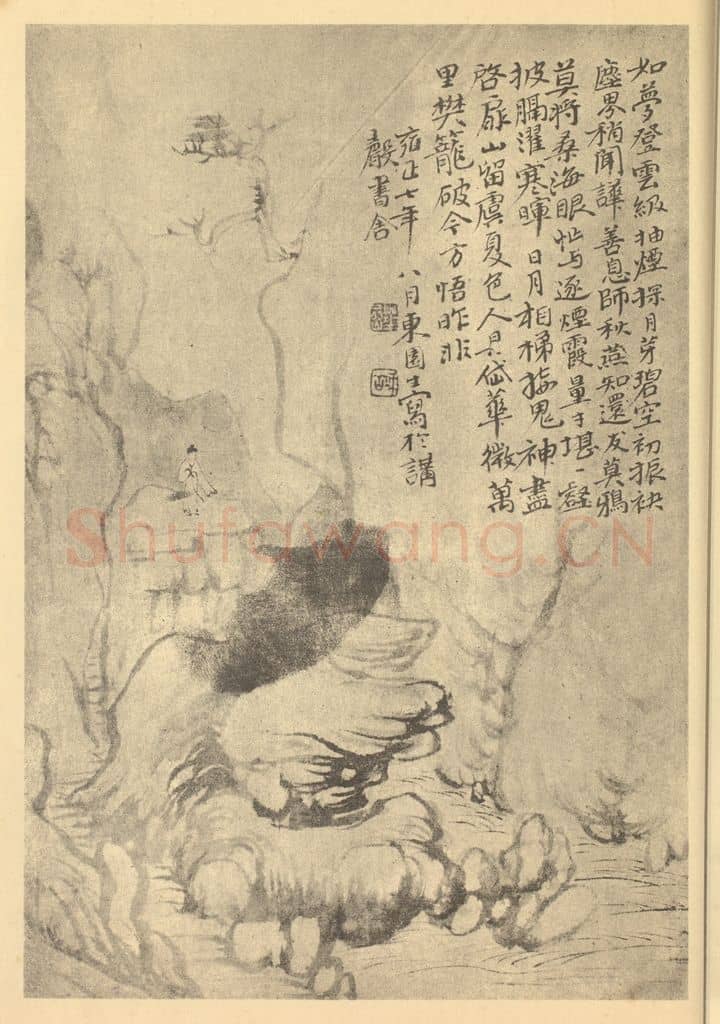 如夢登雲級抽煙探月芽碧空初振袂
塵界稍聞譁善息師秋燕知還友莫鴉
莫將桑海眼逐煙霞量于堪一壑
披胸濯寒暉日月相梯接鬼神盡
啓扉山留虞夏色人具岱華微萬
里樊籠破今方悟昨非
雍正七年八月東園生寫於講
縠書舍
Shufawang.CN